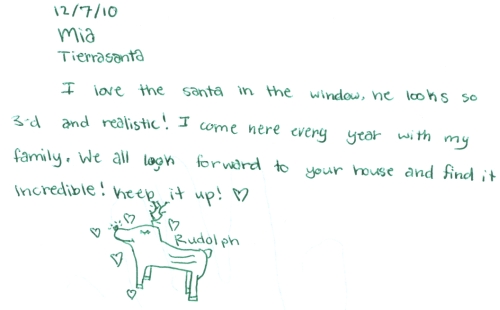 12/7/10
Mia
Tierrasanta
I love the santa in the window, he looks so
3-d and realistic! I come here every year with my
family. We all look forward to your house and find it
incredible! Keep it up! ♡
Rudolph